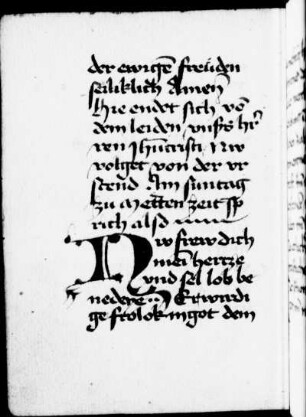 der ewigē freüden
seiliklich Amen
Hie endet sich võ
dem leiden vnsṡ hr̄
ren Jhucristi Nw
volget von der vr
stend Am suntag
zu Metten zeit sp
rich also
Nw frew dich
mei hertze
vnd sel lob be
nedeye Erwirdi
ge frolok in got dem